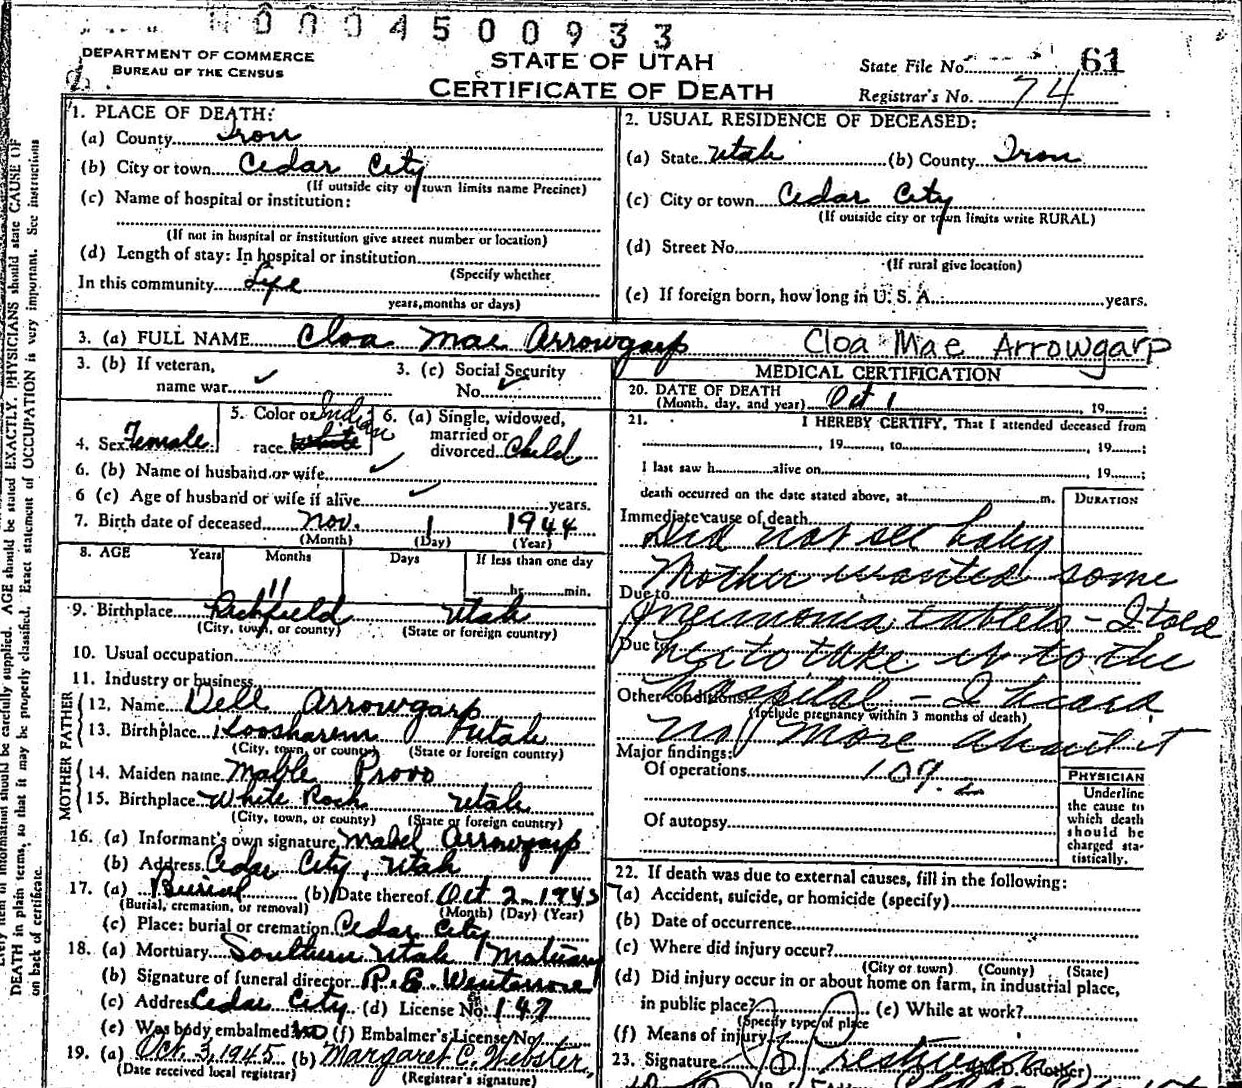 0004500933
DEPARTMENT OF COMMERCE
BUREAU OF THE CENSUS
STATE OF UTAH
CERTIFICATE OF DEATH
State File No. 61
Registrar's No. 74
1. PLACE OF DEATH:
(a) County Iron
(b) City or town Cedar City
(If outside city or town limits name Precinct)
(c) Name of hospital or institution:
(If not in hospital or institution give street number or location)
(d) Length of stay: In hospital or institution
(Specify whether
In this community Life
years, months or days)
2. USUAL RESIDENCE OF DECEASED:
(a) State Utah (b) County Iron
(c) City or town Cedar City
(If outside city or town limits write RURAL)
(d) Street No.
(If rural give location)
(e) If foreign born, how long in U. S. A. years.
3. (a) FULL NAME Cloa Mae Arrowgarp Cloa Mae Arrowgarp
3. (b) If veteran,
name war
3. (c) Social Security
No.
4. Sex Female
5. Color or Indian
race White
6. (a) Single, widowed,
married or
divorced Child
6. (b) Name of husband or wife
6 (c) Age of husband or wife if alive years.
7. Birth date of deceased Nov. 1 1944
(Month) (Day) (Year)
8. AGE Years Months Days If less than one day
11 hr. min.
9. Birthplace Richfield Utah
(City, town, or county) (State or foreign country)
10. Usual occupation
11. Industry or business
FATHER
12. Name Dell Arrowgarp
13. Birthplace Koosharem Utah
(City, town, or county) (State or foreign country)
MOTHER
14. Maiden name Mable Provo
15. Birthplace White Rock Utah
(City, town, or county) (State or foreign country)
16. (a) Informant's own signature Mabel Arrowgarp
(b) Address Cedar City, Utah
17. (a) Burial (b) Date thereof Oct 2 - 1945
(Burial, cremation, or removal) (Month) (Day) (Year)
(c) Place: burial or cremation Cedar City
18. (a) Mortuary Southern Utah Mortuary
(b) Signature of funeral director
(c) Address Cedar City (d) License No. 147
(e) Was body embalmed? no (f) Embalmer's License No.
19. (a) Oct. 3, 1945 (b) Margaret C. Webster,
(Date received local registrar) (Registrar's signature)
MEDICAL CERTIFICATION
20. DATE OF DEATH
(Month, day, and year) Oct 1 19 ;
21. I HEREBY CERTIFY, That I attended deceased from
, 19 , to , 19 ;
I last saw h alive on 19 ;
death occurred on the date stated above, at m.
DURATION
Immediate cause of death
Did not see baby
Mother wanted some
Due to
pneumonia tablets - I told
Due to
her to take it to the
Other conditions
hospital - I heard
(Include pregnancy within 3 months of death)
no more about it
Major findings:
Of operations 109.2
Of autopsy
PHYSICIAN
Underline
the cause to
which death
should be
charged sta-
tistically.
22. If death was due to external causes, fill in the following:
(a) Accident, suicide, or homicide (specify)
(b) Date of occurrence
(c) Where did injury occur?
(City or town) (County) (State)
(d) Did injury occur in or about home on farm, in industrial place,
in public place? (e) While at work?
(Specify type of place
(f) Means of injury
23. Signature (M.D. or other)
AGE should be stated EXACTLY. PHYSICIANS should state CAUSE OF
DEATH in plain terms, so that it may be properly classified. Exact statement of OCCUPATION is very important. See instructions
on back of certificate.